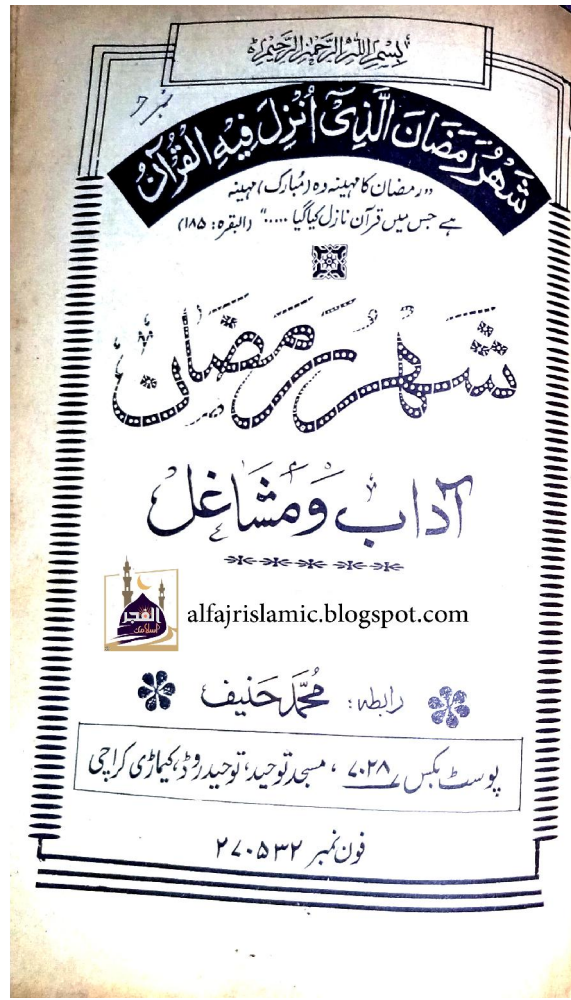 بِسْمِ اللّٰهِ الرَّحْمٰنِ الرَّحِيْمِ
شَهْرُ رَمَضَانَ الَّذِیْٓ اُنْزِلَ فِيْهِ الْقُرْآنُ
"رمضان کا مہینہ وہ (مُبارک) مہینہ
ہے جس میں قرآن نازل کیا گیا ....." (البقرہ: ۱۸۵)
شهر رمضان
آداب و مشاغل
الفجر
alfajrislamic.blogspot.com
رابطہ: مُحمّد حنیف
پوسٹ بکس ۷۰۲۸، مسجد توحید، توحید روڈ، کیماڑی کراچی
فون نمبر ۲۷۰۵۳۲